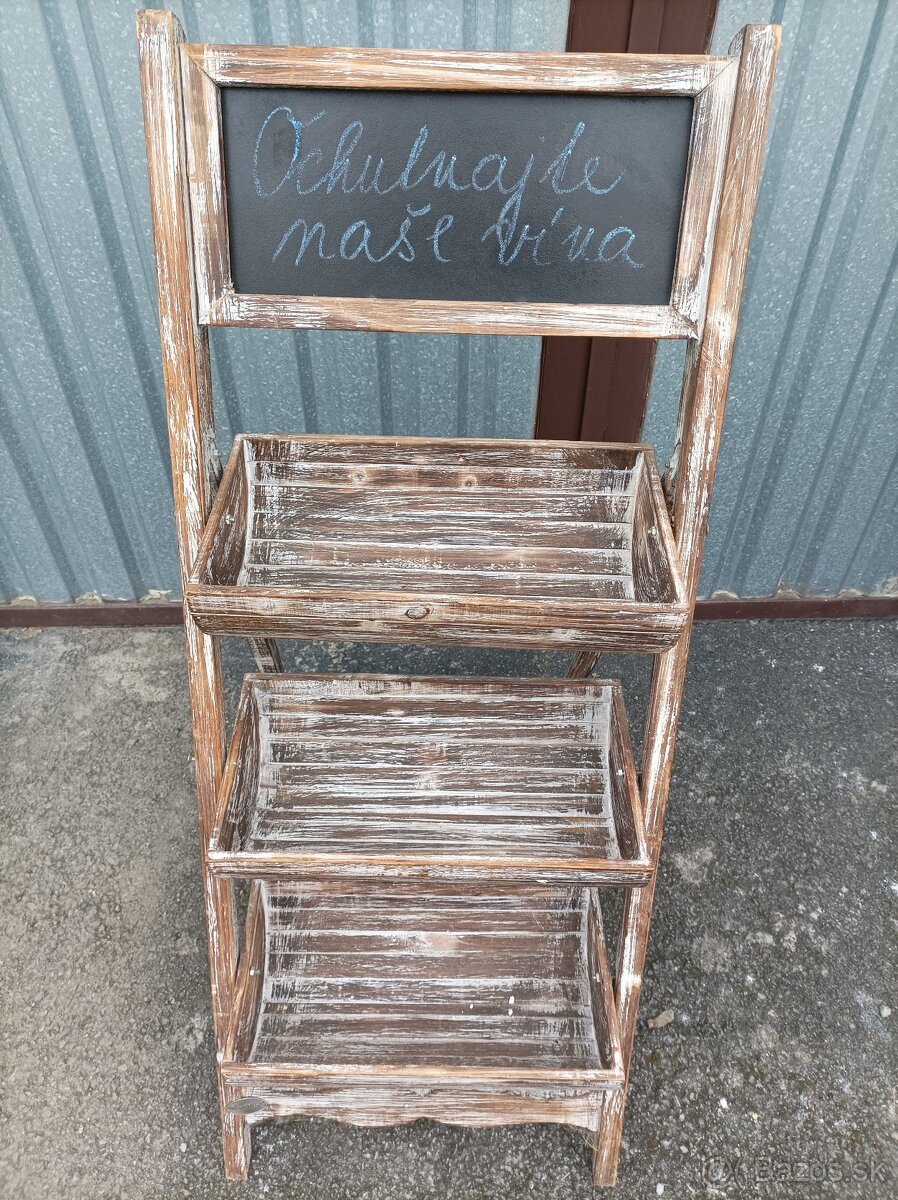 Ochutnajte
naše vína
Bazoš.sk